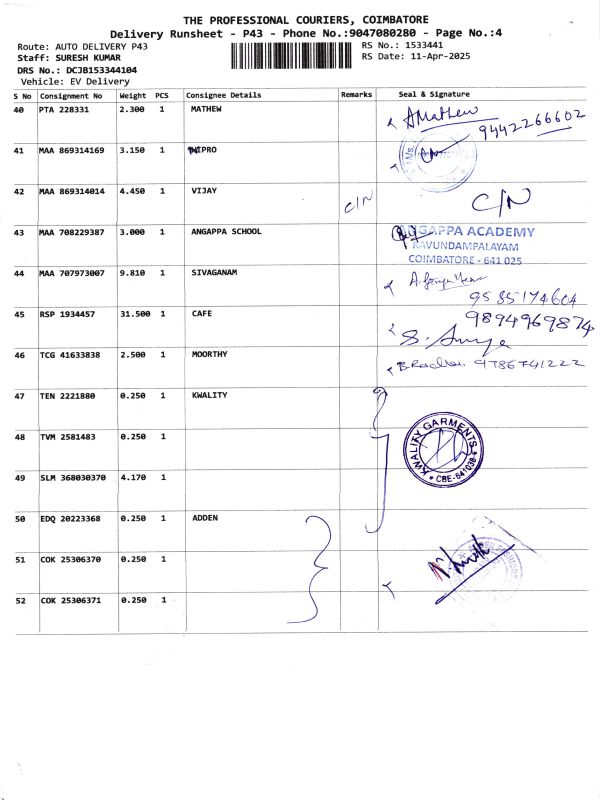 THE PROFESSIONAL COURIERS, COIMBATORE
Delivery Runsheet - P43 - Phone No.:9047080280 - Page No.:4
Route: AUTO DELIVERY P43 RS No.: 1533441
Staff: SURESH KUMAR RS Date: 11-Apr-2025
DRS No.: DCJB153344104
Vehicle: EV Delivery
S No Consignment No Weight PCS Consignee Details Remarks Seal & Signature
40 PTA 228331 2.300 1 MATHEW AMathew
9442266602
41 MAA 869314169 3.150 1 WIPRO M/s. C/N
42 MAA 869314014 4.450 1 VIJAY C/N C/N
43 MAA 708229387 3.000 1 ANGAPPA SCHOOL ANGAPPA ACADEMY
KAVUNDAMPALAYAM
COIMBATORE - 641 025
44 MAA 707973007 9.810 1 SIVAGANAM
9535174604
45 RSP 1934457 31.500 1 CAFE 9894969874
46 TCG 41633838 2.500 1 MOORTHY 9786741222
47 TEN 2221880 0.250 1 KWALITY
KWALITY GARMENTS
* CBE-641038 *
48 TVM 2581483 0.250 1
49 SLM 368030370 4.170 1
50 EDQ 20223368 0.250 1 ADDEN
51 COK 25306370 0.250 1
52 COK 25306371 0.250 1